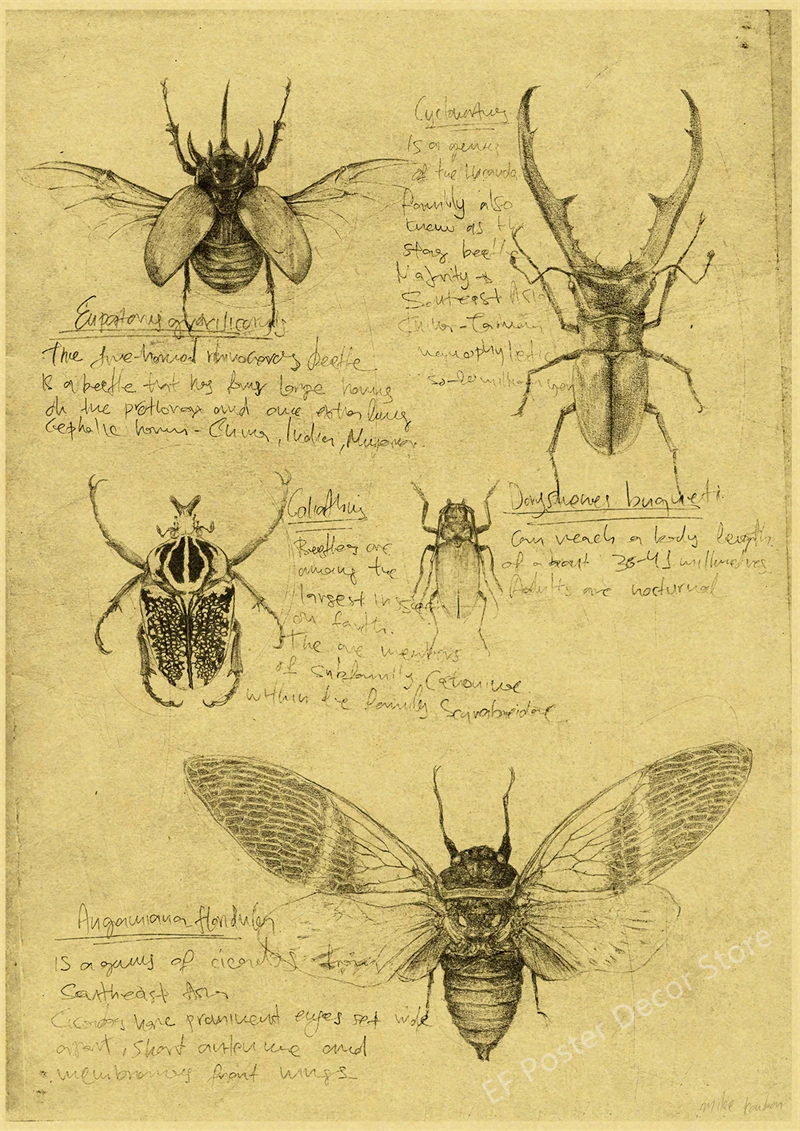 Cyclommatus
Is a genus
of the Lucanidae
family also
known as the
stag beetle
Majority
Southeast Asia
Eupatorus gracilicornis
The five-horned rhinoceros beetle
Is a beetle that has four large horns
on the prothorax and one extra long
Cephalic horn - China, India,
Goliathus
Beetles are
among the
largest insects
on Earth.
The are members
of subfamily Cetoniinae
within the family Scarabaeidae
Dorysthenes buqueti
Can reach a body length
of about 36-41 millimetres
Adults are nocturnal
Angamiana floridula
Is a genus of cicadas from
Southeast Asia
Cicadas have prominent eyes set wide
apart, short antennae and
membranous front wings
EF Poster Decor Store
mike